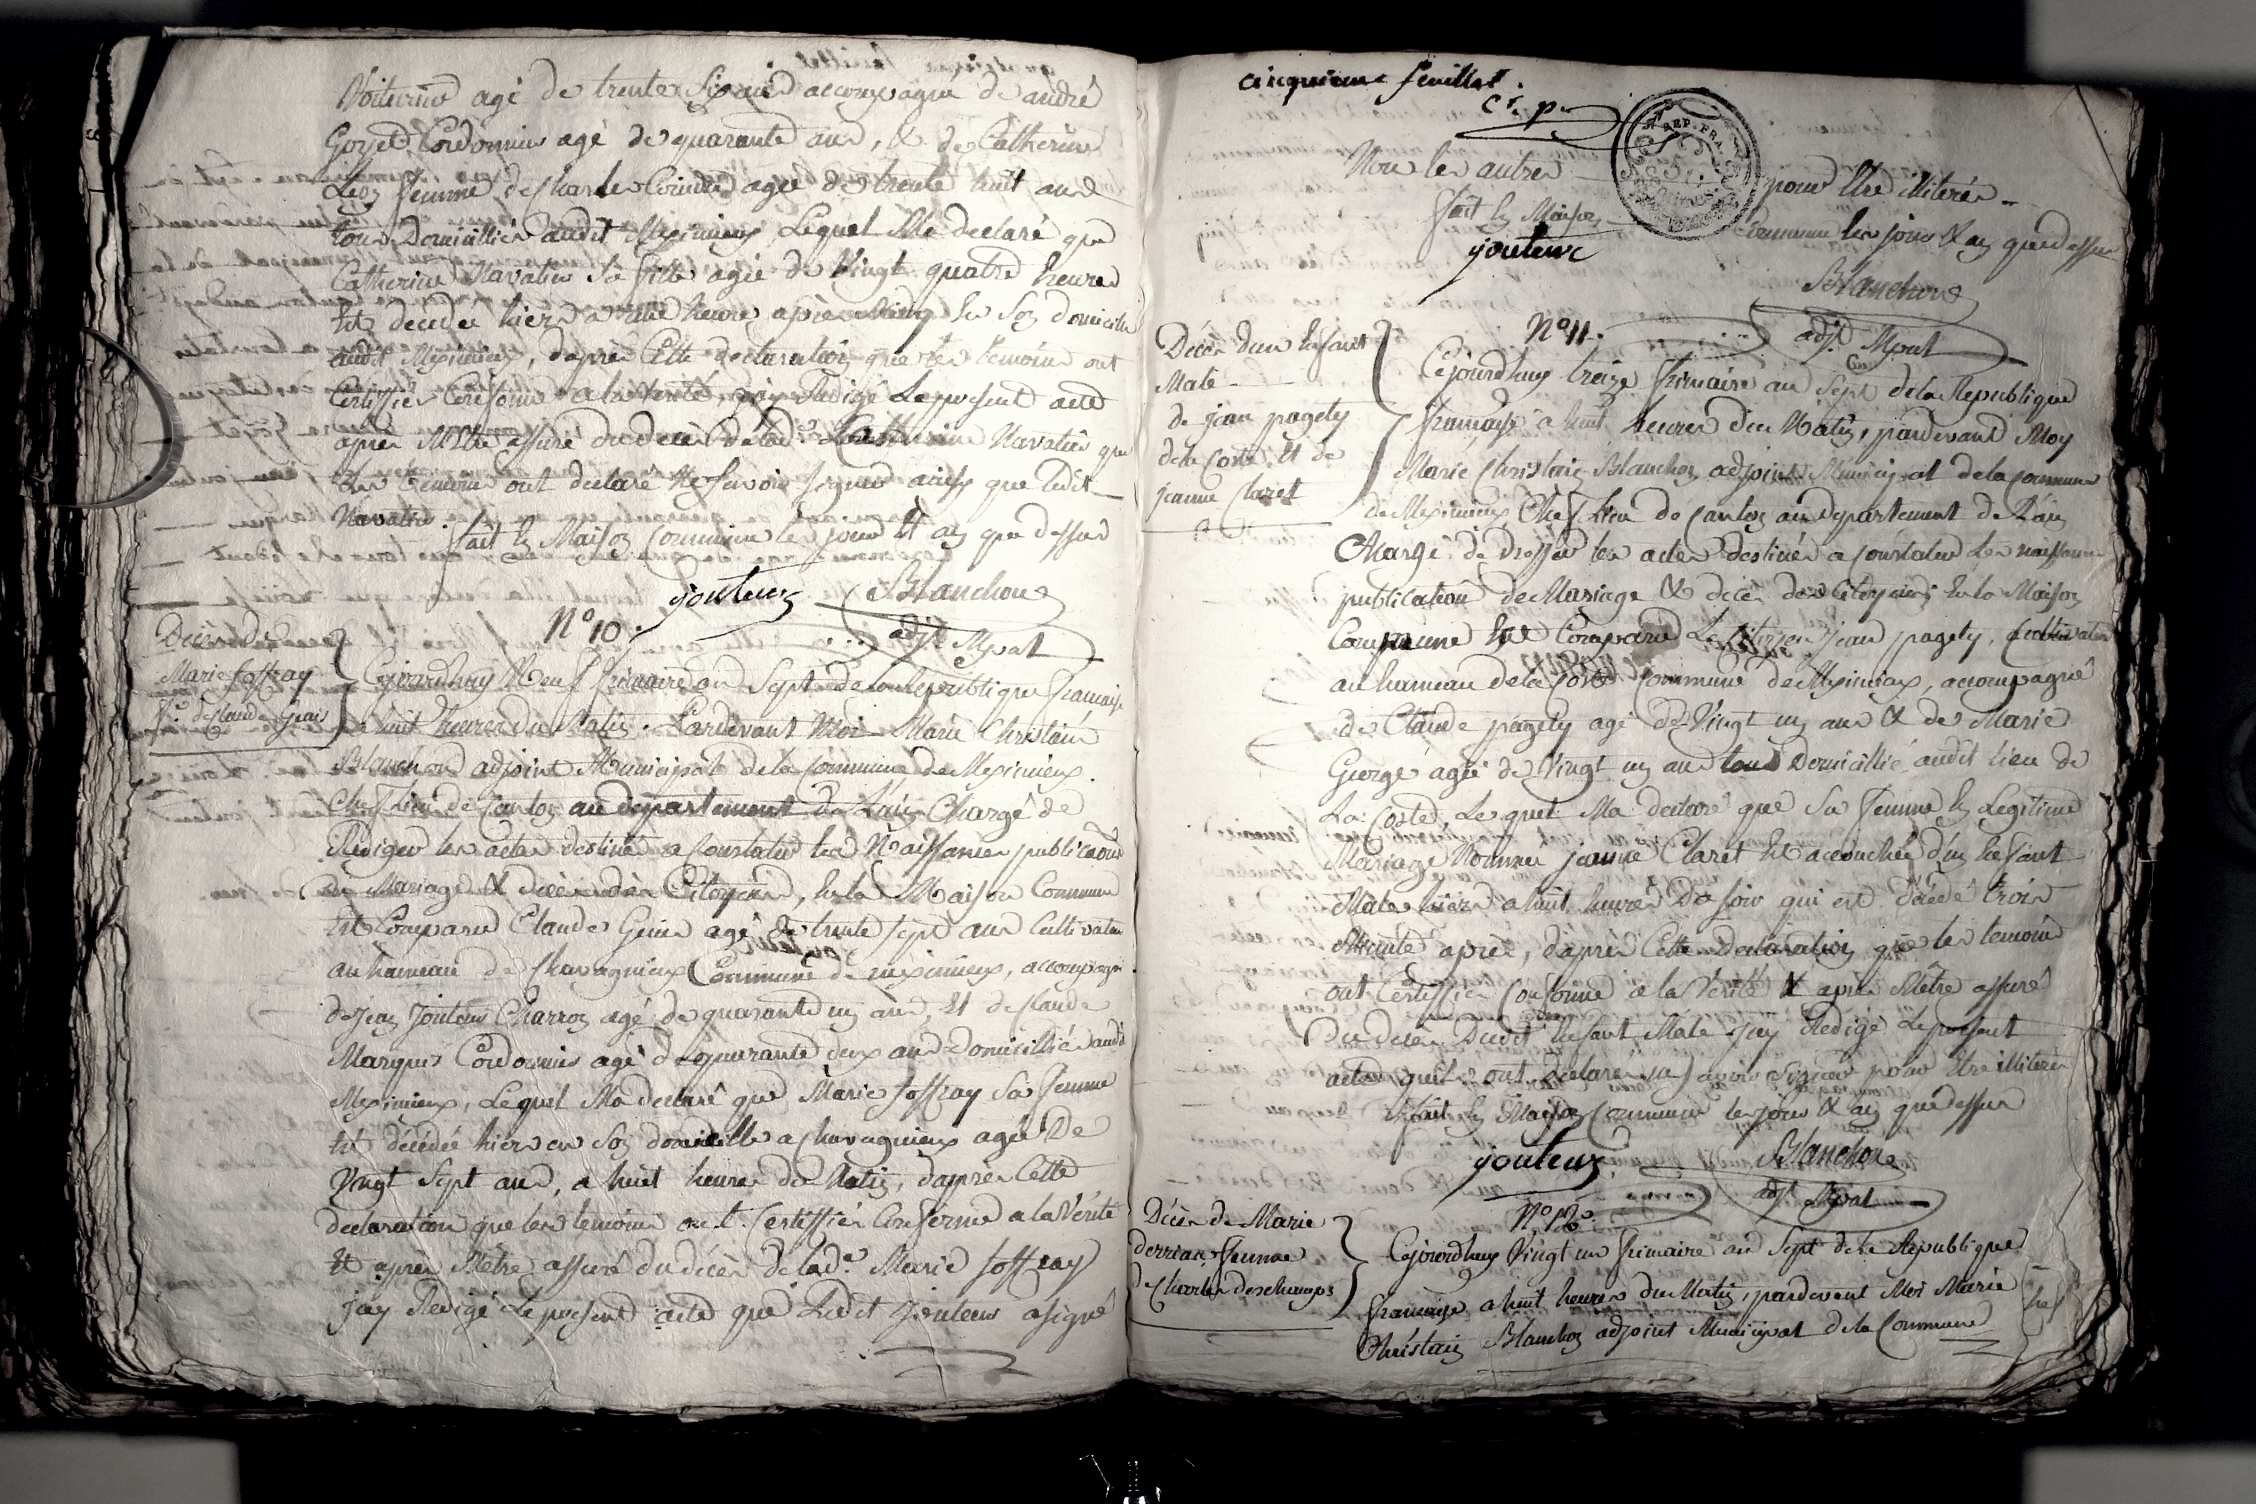 Voiturier agé de trente six ans accompagne de andré
Goyet Cordonnier agé de quarante ans, & de Catherine
femme de Charles agée de trente huit ans
tous Domicilliés audit Meximieux, Lequel Ma declaré que
Catherine Navatier Sa fille agée de Vingt quatre heures
Est decedée hier a une heure après Midy en Son domicile
audit Meximieux, daprès Cette declaration que les temoins ont
Certiffiés Conforme a la Vérité, jay Redigé Le present acte
apres Mêtre assuré du decès de lad.e Catherine Navatier que
les temoins ont declaré Ne Savoir Signer ainsy que Ledit
Navatier. fait En Maison Commune les jour Et an que dessus
jouteur Blanchon
adj.t Mpal
N.o 10.
Décès de
Marie Joffray
f.e de Claude Genis
Cejourdhuy Neuf frimaire an Sept de la Republique francaise
a huit heures du Matin. Pardevant Moi Marie Christain
Blanchon adjoint Municipal de la Commune de Meximieux.
Chef Lieu de Canton au departement de Lain Chargé de
Rediger les actes destinés a Constater les Naissances publicaons
de Mariage & décès des Citoyens, En la Maison Commune
Est Comparu Claude Genis agé de trente sept ans Cultivateur
au hameau de Chavagnieux Commune de meximieux, accompagné
de jean Jouteur Charron agé de quarante un ans, Et de Claude
Marquis Cordonnier agé de quarante deux ans Domicilliés audit
Meximieux, Lequel Ma declaré que Marie Joffray Sa femme
Est décédée hier en Son domicille a Chavagnieux agée De
Vingt Sept ans, a huit heures du Matin, daprès Cette
declaration que les temoins ont Certiffiés Conforme a la Vérité
Et après Mêtre assuré du décès de lad.e Marie Joffray
jay Redigé Le present acte que Ledit Jouteur a signé
cinquieme feuillet.
Non les autres pour Etre illiterés
fait En Maison Commune les jour & an que dessus
jouteur
Blanchon
adj.t Mpal
N.o 11.
Décès dun Enfant
Male
de jean pagety
de la Coste Et de
jeanne Claret
Cejourdhuy treize frimaire an Sept de la Republique
francaise a huit heures du Matin, pardevant Moy
Marie Christain Blanchon adjoint Municipal de la Commune
de Meximieux Chef Lieu de Canton au departement de Lain
Chargé de dresser les actes destinés a Constater Les naissances
publication de Mariage & décès des Citoyens En la Maison
Commune Est Comparu Le Citoyen Jean pagety, Cultivateur
au hameau de la Coste Commune de Meximieux, accompagné
de Claude pagety agé de Vingt un ans & de Marie
George agée de Vingt un ans tous Domicillié audit Lieu de
La Coste, Lequel Ma declaré que Sa femme En Legitime
Mariage Nommée jeanne Claret Est accouchée d'un Enfant
Male hier a huit heures Du soir qui est décédé trois
Minute après, daprès Cette declaration que les temoins
ont Certiffiés Conforme a la Vérité & après Mêtre assuré
Du décès Dudit Enfant Male jay Redigé Le present
acte quils ont declaré ne savoir Signer pour Etre illiteré
fait En Maison Commune les jour & an que dessus
jouteur Blanchon
adj.t Mpal
N.o 12.
Décès de Marie
derrias femme
de Charles deschamps
Cejourdhuy Vingt un frimaire an Sept de la Republique
francaise a huit heures du Matin, pardevant Moi Marie
Christain Blanchon adjoint Municipal de la Commune